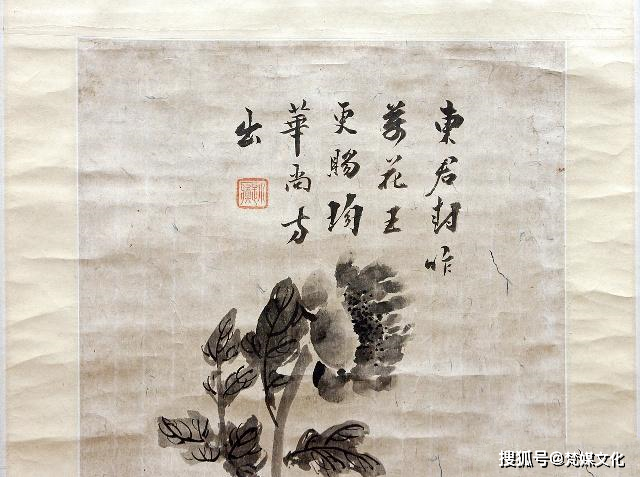 東君封作
萬花王
更賜
華尚方
出
搜狐号@梵媒文化